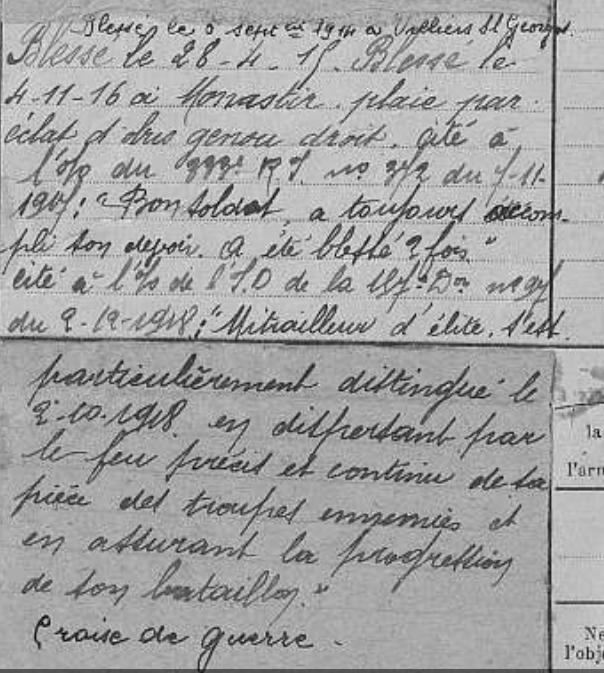 Blessé le 6 sept bre 1914 à Villiers St Georges.
Blessé le 28-4-15. Blessé le
4-11-16 à Monastir. plaie par
éclat d'obus genou droit. cité à
l'o/o du R.I. no 372 du 7-11-
1917: "Bon soldat, a toujours accom-
pli son devoir. a été blessé 2 fois."
cité à l'o/o de l'I.D de la Don no 97
du 2-12-1918: "Mitrailleur d'élite. s'est
particulièrement distingué le
2-10-1918 en dispersant par
le feu précis et continu de sa
pièce des troupes ennemies et
en assurant la progression
de son bataillon."
Croise de guerre.
la
l'arm
Ne
l'obje